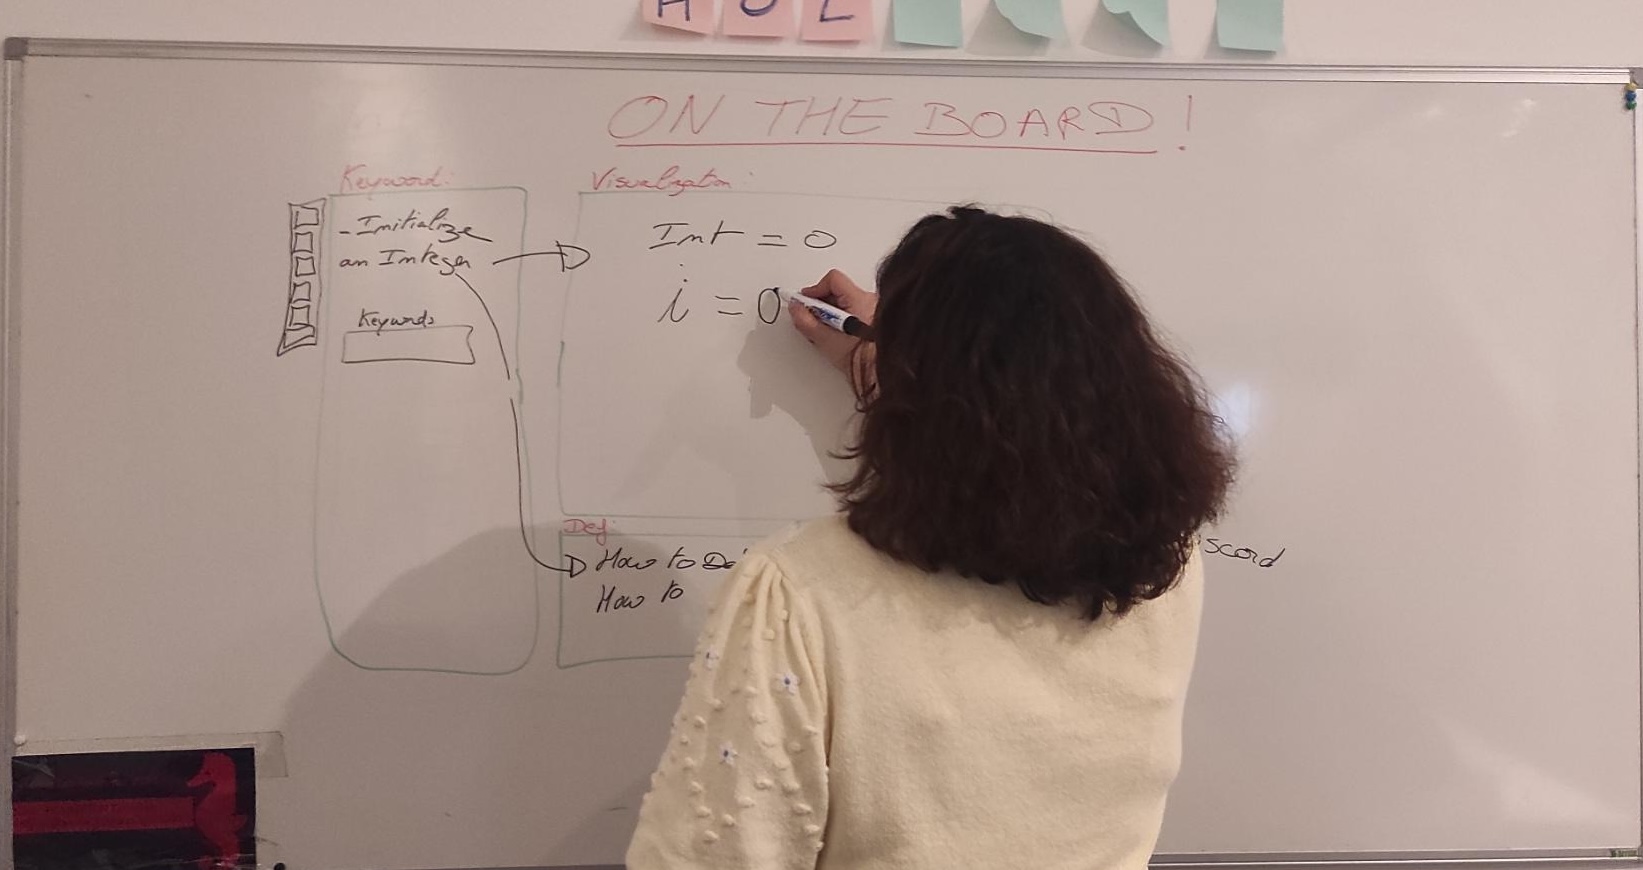 H O L
ON THE BOARD!
Keyword:
- Initialize
an Integer
Keywords
Visualization:
Int = 0
i = 0
Def:
How to De
How to
scord